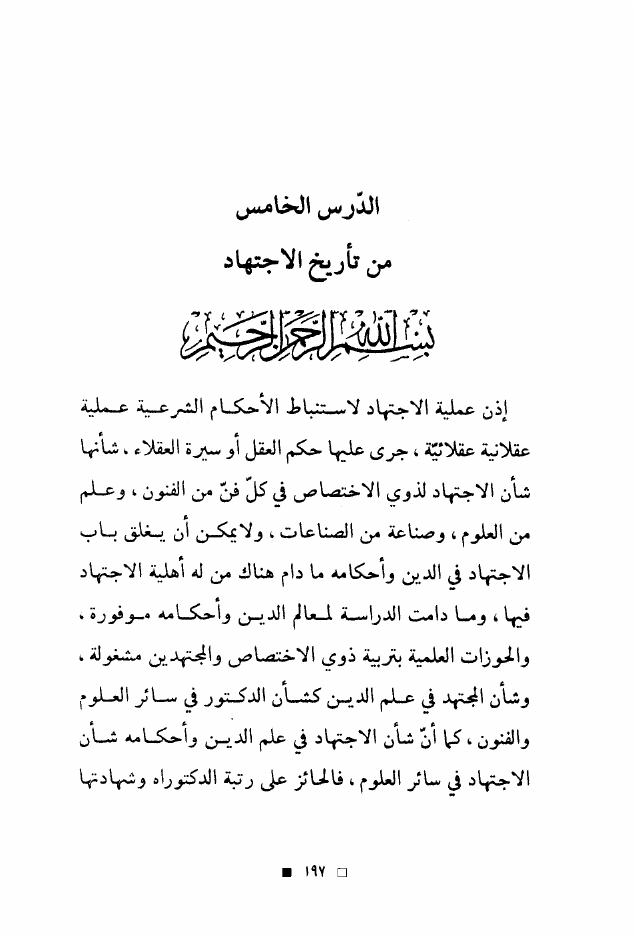 الدّرس الخامس
من تأريخ الاجتهاد
بسم الله الرحمن الرحيم
إذن عملية الاجتهاد لاستنباط الأحكام الشرعية عملية
عقلانية عقلائيّة ، جرى عليها حكم العقل أو سيرة العقلاء ، شأنها
شأن الاجتهاد لذوي الاختصاص في كلّ فنّ من الفنون ، وعلم
من العلوم ، وصناعة من الصناعات ، ولا يمكن أن يغلق باب
الاجتهاد في الدين وأحكامه ما دام هناك من له أهلية الاجتهاد
فيها ، وما دامت الدراسة لمعالم الدين وأحكامه موفورة ،
والحوزات العلمية بتربية ذوي الاختصاص والمجتهدين مشغولة ،
وشأن المجتهد في علم الدين كشأن الدكتور في سائر العلوم
والفنون ، كما أنّ شأن الاجتهاد في علم الدين وأحكامه شأن
الاجتهاد في سائر العلوم ، فالحائز على رتبة الدكتوراه وشهادتها
□ ١٩٧ ■